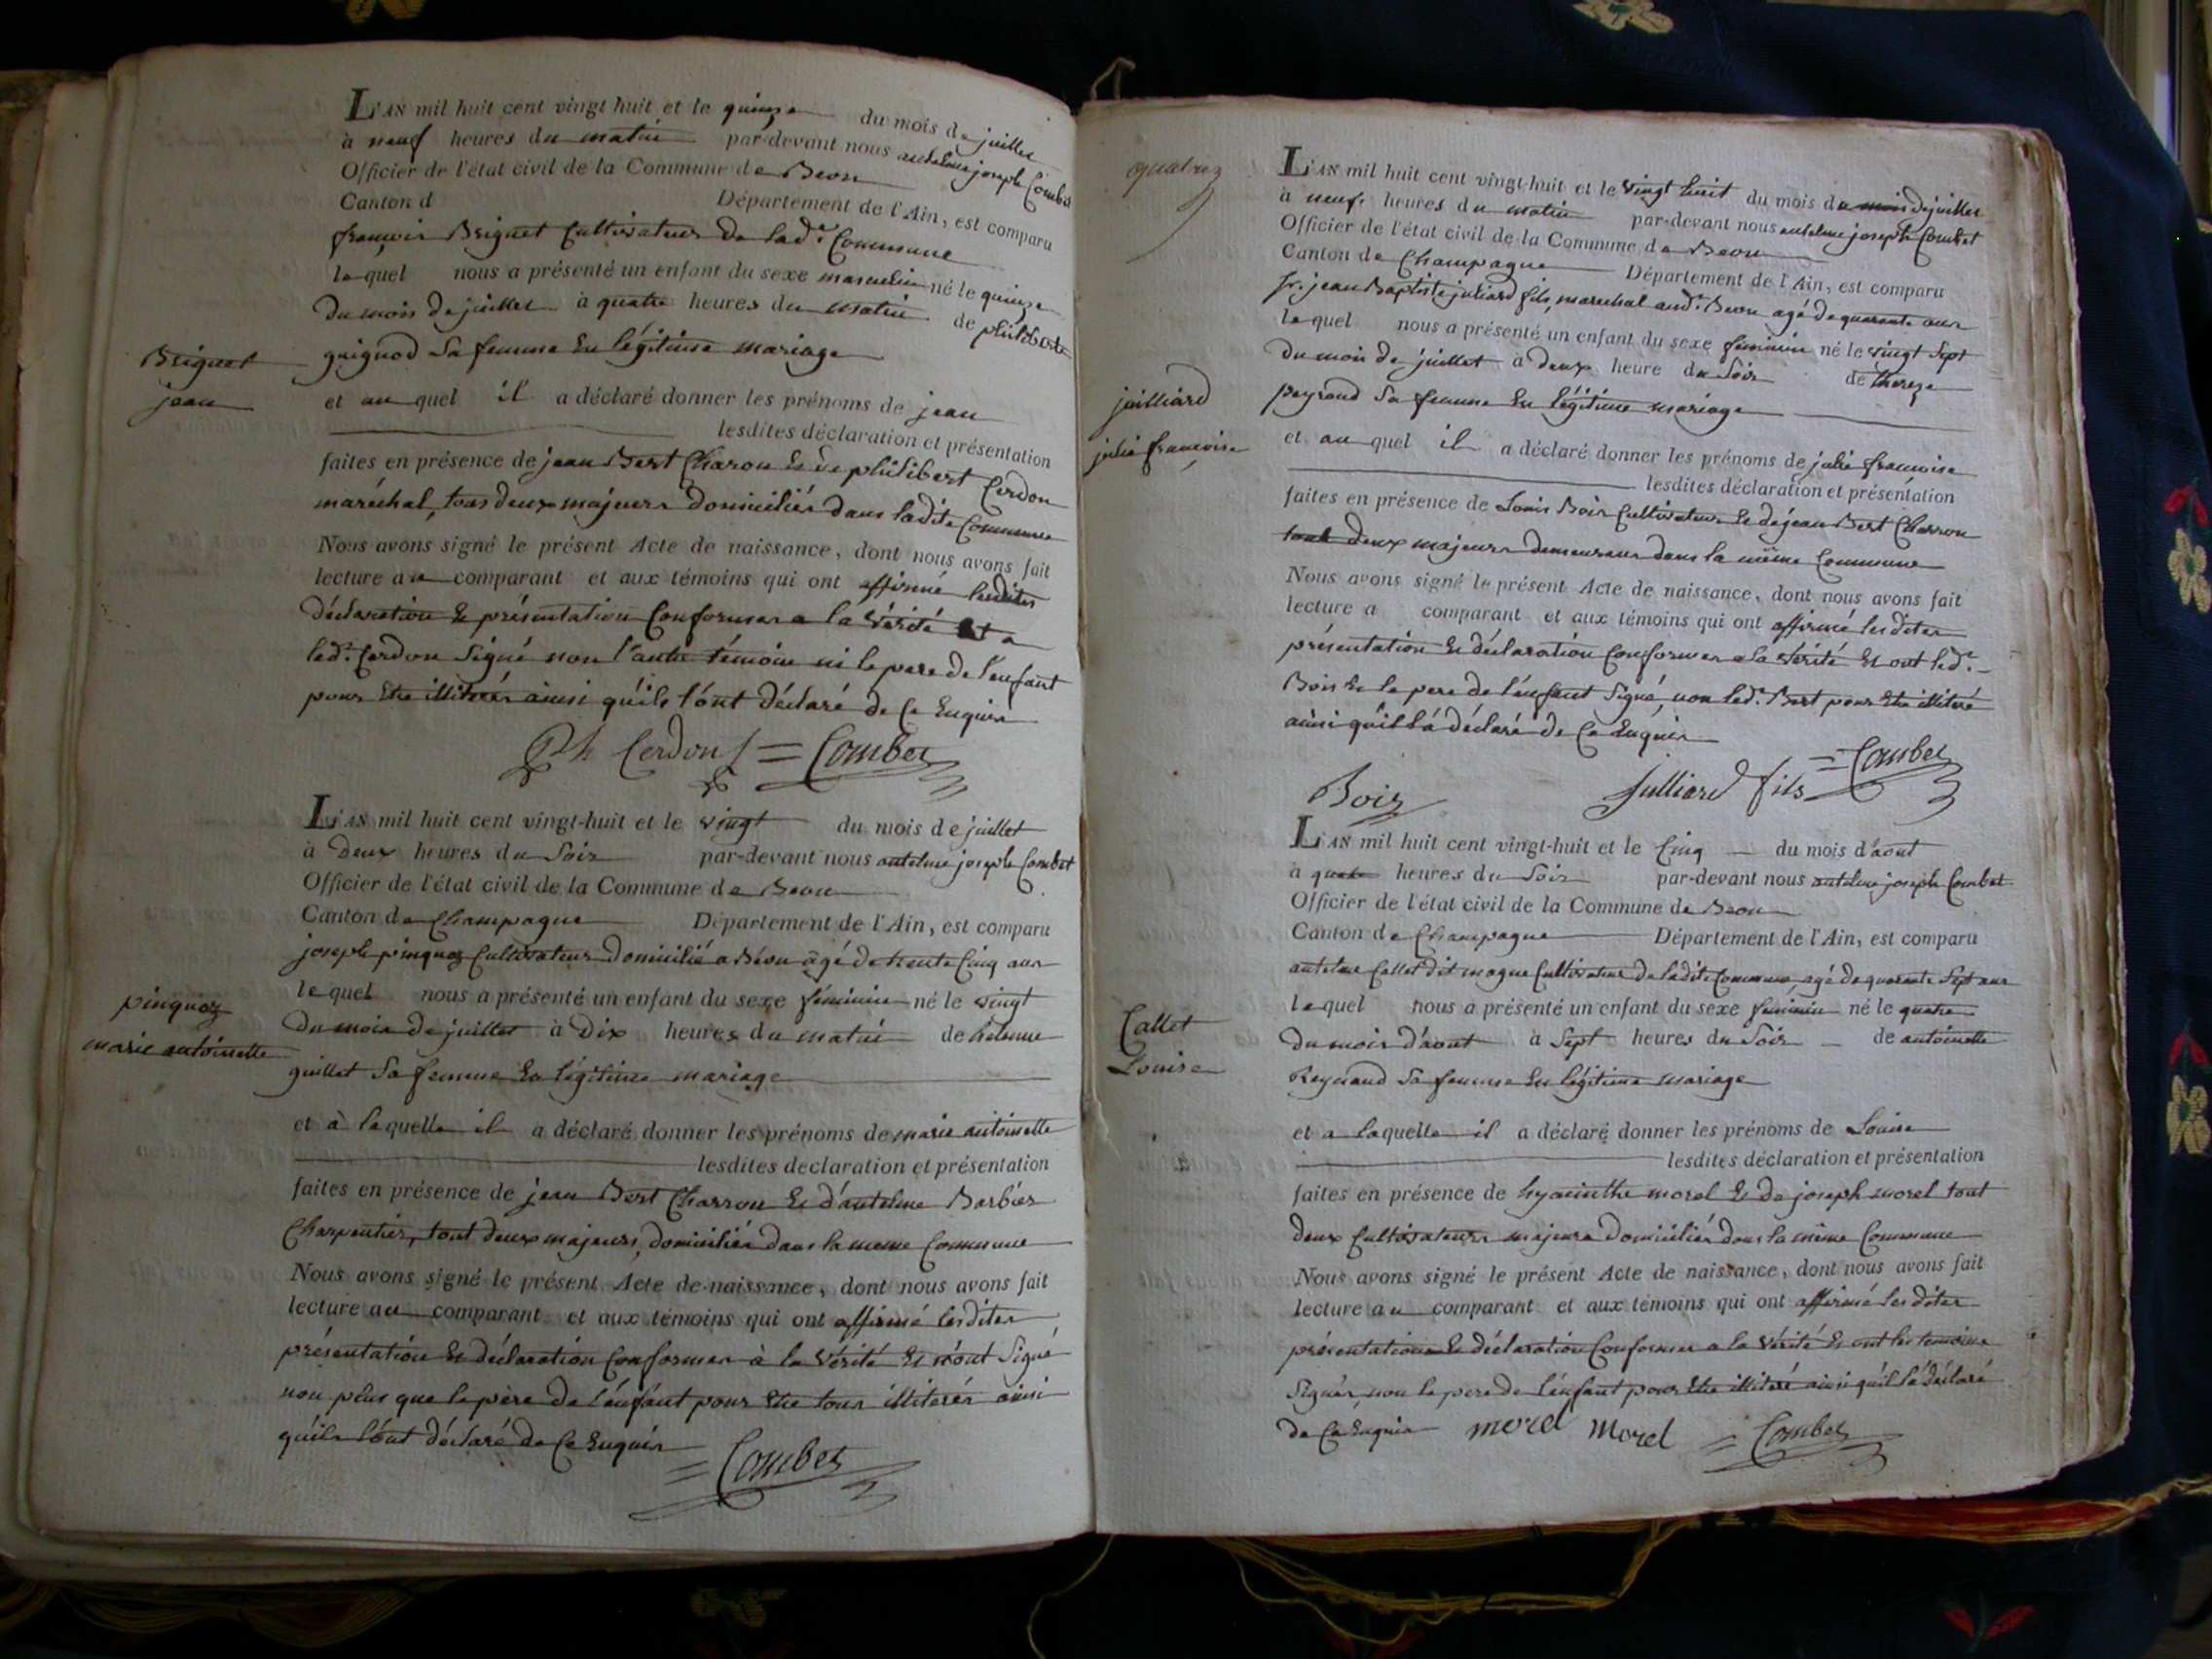 L'AN mil huit cent vingt huit et le quinze du mois de juillet
à neuf heures du matin par-devant nous antelme joseph Combet
Officier de l'état civil de la Commune de Beon
Canton d Département de l'Ain, est comparu
françois Briguet Cultivateur de lad.e Commune
lequel nous a présenté un enfant du sexe masculin né le quinze
du mois de juillet à quatre heures du matin de philiberte
guignod Sa femme En légitime mariage
Briguet
jean
et au quel il a déclaré donner les prénoms de jean
lesdites déclaration et présentation
faites en présence de jean Bert Charon Et de philibert Cerdon
maréchal, tous deux majeurs Domiciliés dans ladite Commune
Nous avons signé le présent Acte de naissance, dont nous avons fait
lecture au comparant et aux témoins qui ont affirmé lesdites
déclaration Et présentation Conformes a la Vérité Et a
led.t Cerdon Signé non l'autre témoin ni le pere de l'enfant
pour Etre illiterés ainsi qu'ils l'ont déclaré de Ce Enquis
Ph Cerdon = Combet
L'AN mil huit cent vingt-huit et le vingt du mois de juillet
à Deux heures du Soir par-devant nous antelme joseph Combet
Officier de l'état civil de la Commune de Beon
Canton de Champagne Département de l'Ain, est comparu
joseph pinquoz Cultivateur Domicilié a Béon âgé de trente Cinq ans
lequel nous a présenté un enfant du sexe féminin né le vingt
du mois de juillet à Dix heures du matin de
guillet Sa femme En légitime mariage
pinquoz
marie antoinette
et à laquelle il a déclaré donner les prénoms de marie antoinette
lesdites declaration et présentation
faites en présence de jean Bert Charron Et d'antelme Barbier
Charpentier, tout deux majeurs, domiciliés dans la meme Commune
Nous avons signé le présent Acte de naissance, dont nous avons fait
lecture au comparant et aux témoins qui ont affirmé lesdites
présentation Et déclaration Conformes à la Vérité Et n'ont Signé
non plus que le père de l'enfant pour Etre tous illiterés ainsi
qu'ils l'ont déclaré de Ce Enquis
= Combet
quatrez
L'AN mil huit cent vingt-huit et le vingt huit du mois du mois de juillet
à neuf heures du matin par-devant nous antelme joseph Combet
Officier de l'état civil de la Commune de Beon
Canton de Champagne Département de l'Ain, est comparu
Sr. jean Baptiste juliard fils, marechal aud.t Beon agé de quarante ans
lequel nous a présenté un enfant du sexe féminin né le vingt Sept
du mois de juillet à deux heure du Soir de thereze
peyraud Sa femme En légitime mariage
juilliard
julie francoise
et au quel il a déclaré donner les prénoms de julie francoise
lesdites déclaration et présentation
faites en présence de Louis Bois Cultivateur Et de jean Bert Charron
tout deux majeurs demeurans dans la même Commune
Nous avons signé le présent Acte de naissance, dont nous avons fait
lecture a comparant et aux témoins qui ont affirmé lesdites
présentation Et déclaration Conformes a la Vérité Et ont led.t
Bois Et le pere de l'enfant Signé, non led.t Bert pour Etre illiteré
ainsi qu'il l'a déclaré de Ce Enquis
= Combet
Bois Julliard fils
L'AN mil huit cent vingt-huit et le Cinq du mois d'aout
à quatre heures du Soir par-devant nous antelme joseph Combet
Officier de l'état civil de la Commune de Beon
Canton de Champagne Département de l'Ain, est comparu
antelme Callet dit magne Cultivateur de ladite Commune agé de quarante Sept ans
lequel nous a présenté un enfant du sexe féminin né le quatre
du mois d'aout à Sept heures du Soir de antoinette
Reynaud Sa femme En légitime mariage
Callet
Louise
et a laquelle il a déclaré donner les prénoms de Louise
lesdites déclaration et présentation
faites en présence de hyacinthe morel Et de joseph morel tout
deux Cultivateurs majeurs Domiciliés dans la même Commune
Nous avons signé le présent Acte de naissance, dont nous avons fait
lecture au comparant et aux témoins qui ont affirmé lesdites
présentation Et déclaration Conformes a la Vérité Et ont les temoins
Signés, non le pere de l'enfant pour Etre illiteré ainsi qu'il l'a déclaré
de Ce Enquis morel Morel = Combet